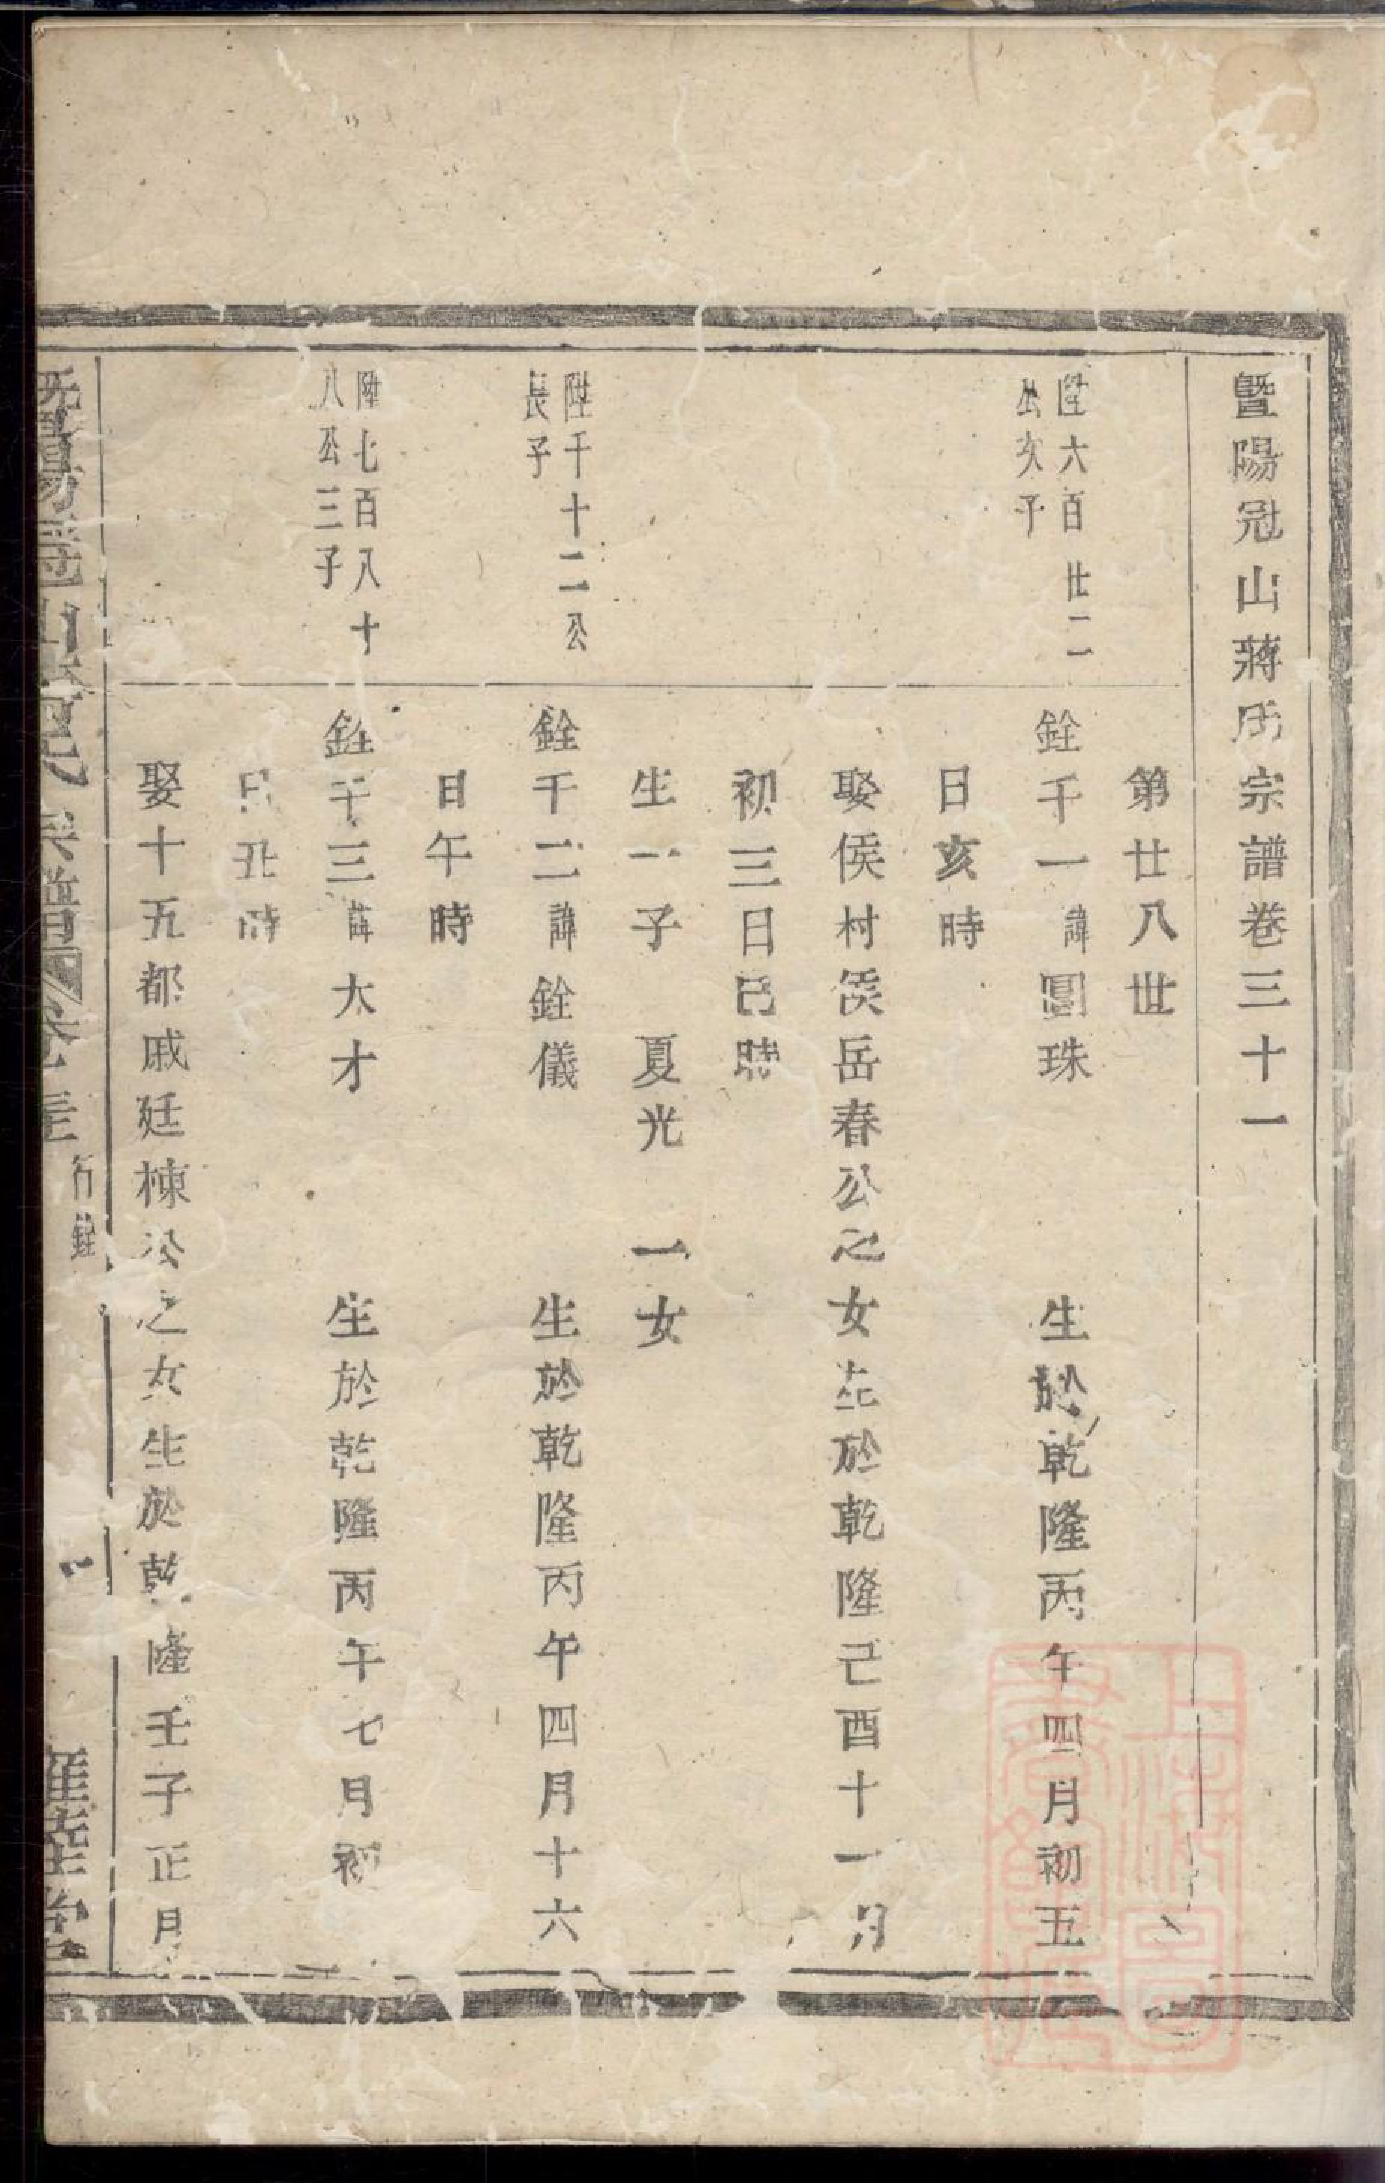 暨陽冠山蔣氏宗譜卷三十一
第廿八世
陞六百廿二
公次子
銓千一諱圓珠 生於乾隆丙午四月初五
日亥時
娶侯村侯岳春公之女生於乾隆己酉十一月
初三日巳時
生一子 夏光 一女
陞千十二公
長子
銓千二諱銓儀 生於乾隆丙午四月十六
日午時
陞七百八十
八公三子
銓千三諱大才 生於乾隆丙午七月初
日丑時
娶十五都戚廷棟公之女生於乾隆壬子正月
暨陽冠山蔣氏宗譜 卷之三 行銓
上海圖書館藏